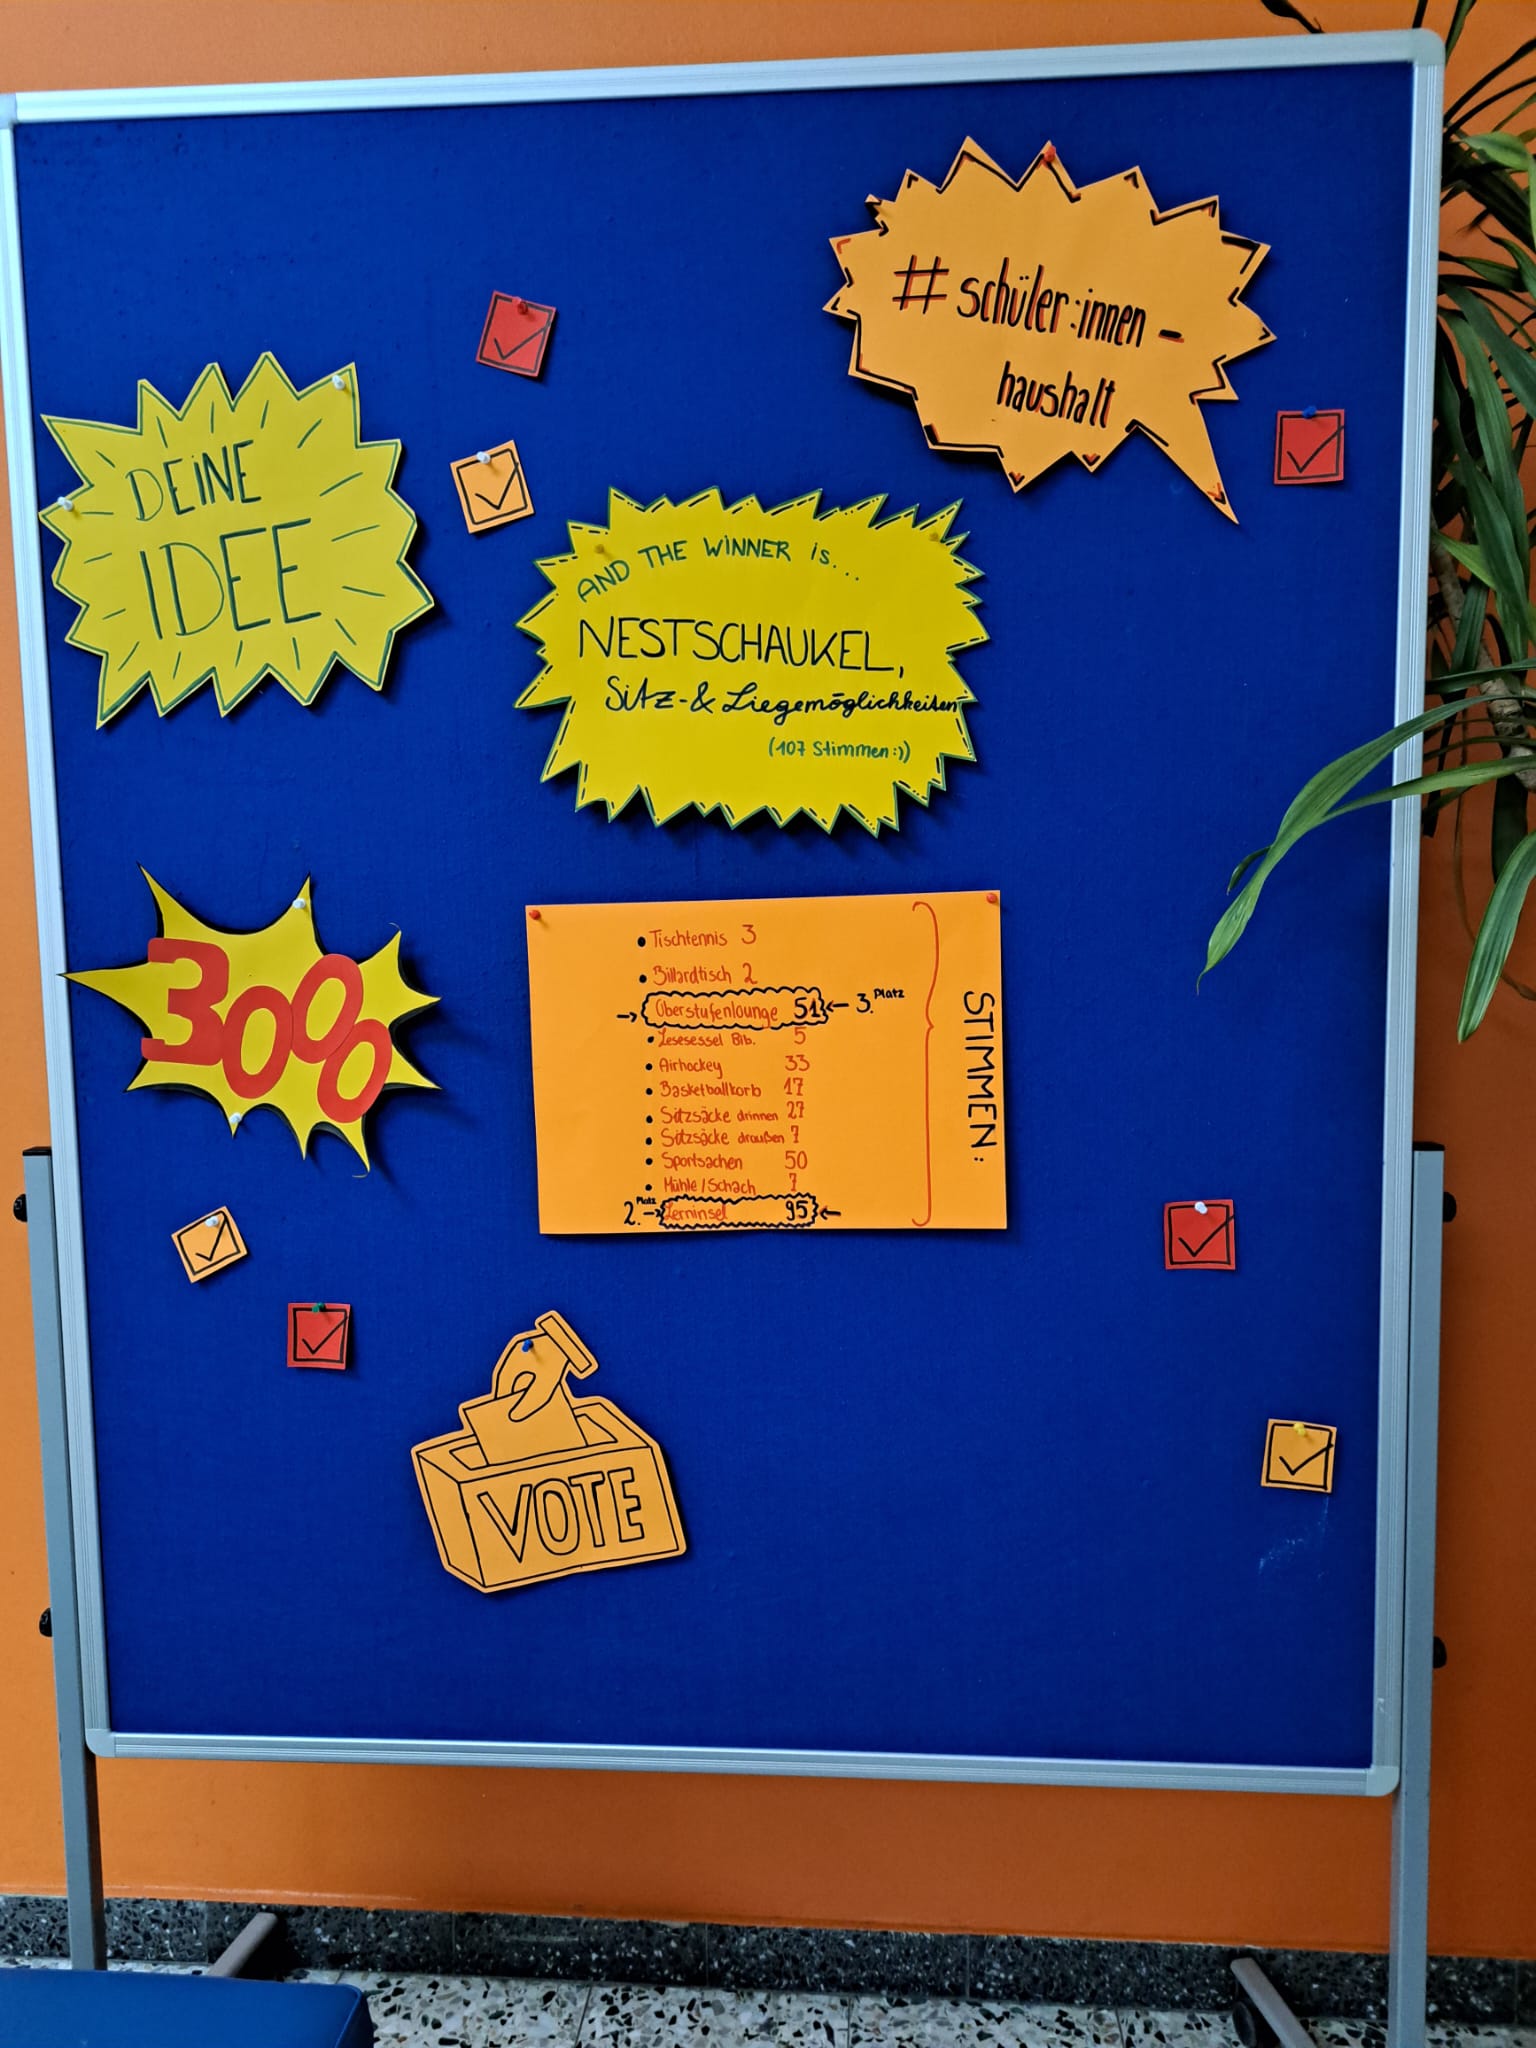 # schüler:innen -
haushalt
DEINE
IDEE
AND THE WINNER is...
NESTSCHAUKEL,
Sitz-& Liegemöglichkeiten
(107 Stimmen:))
3000
STIMMEN:
• Tischtennis 3
• Billardtisch 2
→ Oberstufenlounge 51 ← 3. Platz
• Lesesessel Bib. 5
• Airhockey 33
• Basketballkorb 17
• Sitzsäcke drinnen 27
• Sitzsäcke draußen 7
• Sportsachen 50
• Mühle/Schach 7
2. Platz → Lerninsel 95 ←
VOTE